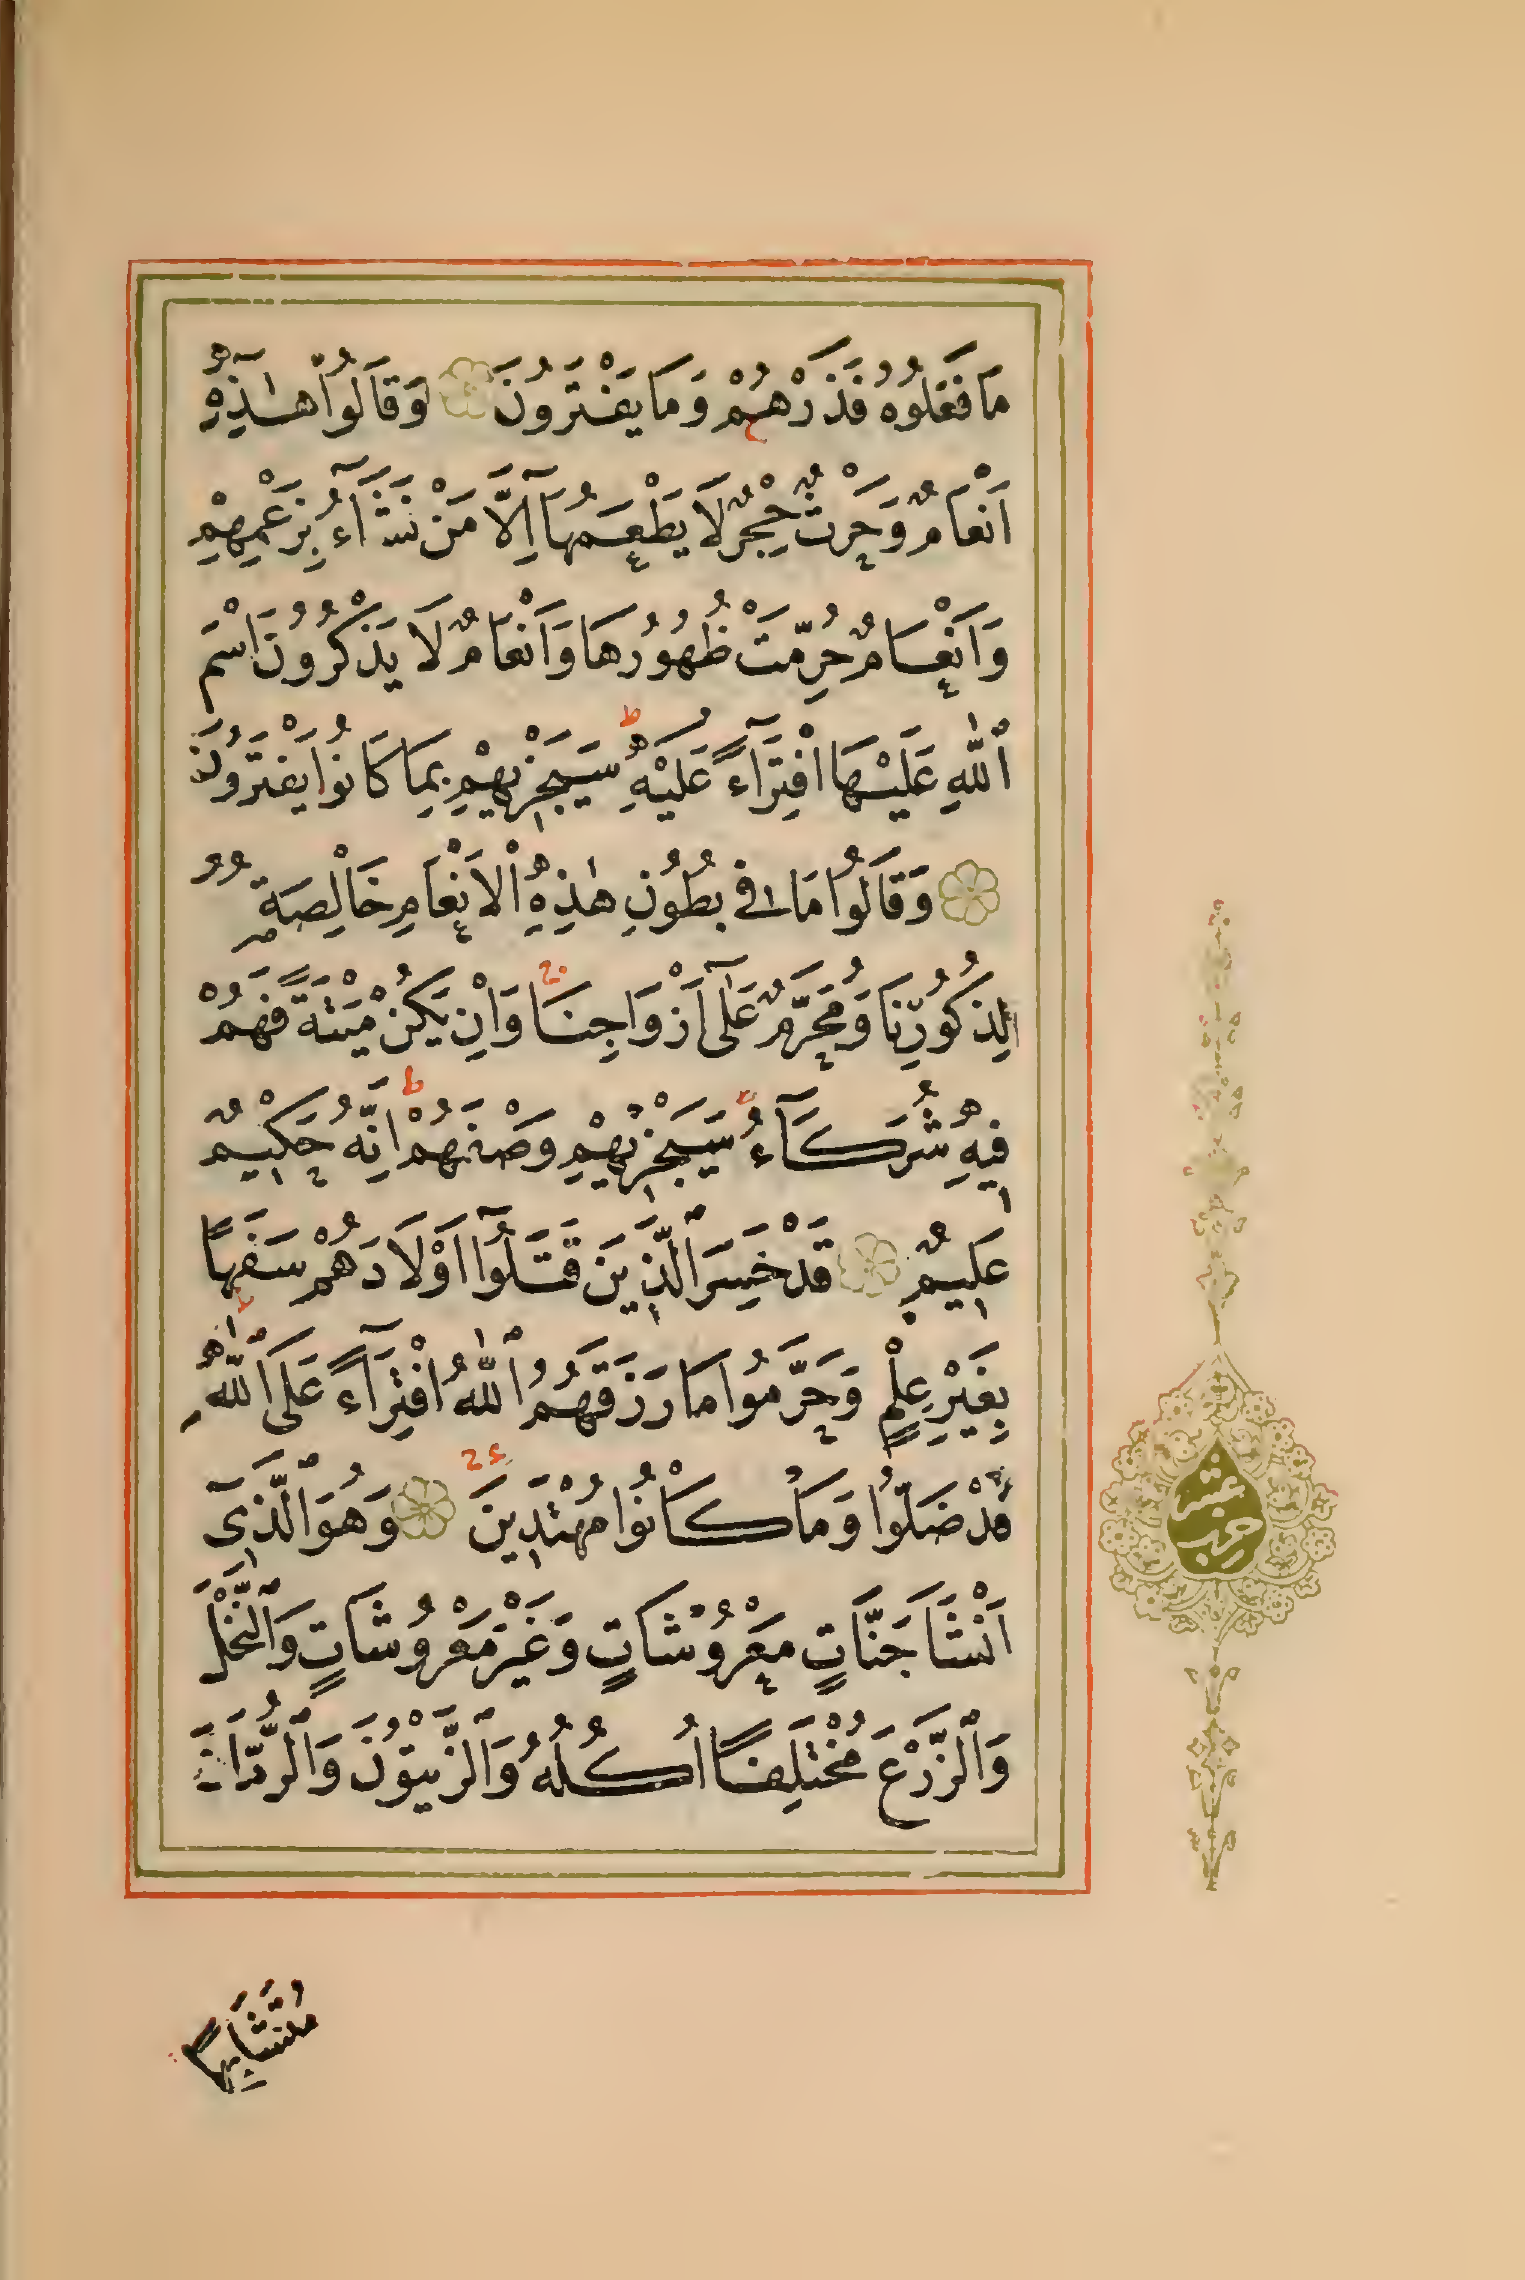 مَا فَعَلُوهُ فَذَرْهُمْ وَمَا يَفْتَرُونَ وَقَالُوا هٰذِهِٓ
اَنْعَامٌ وَحَرْثٌ حِجْرٌ لَا يَطْعَمُهَٓا اِلَّا مَنْ نَشَٓاءُ بِزَعْمِهِمْ
وَاَنْعَامٌ حُرِّمَتْ ظُهُورُهَا وَاَنْعَامٌ لَا يَذْكُرُونَ اسْمَ
اللّٰهِ عَلَيْهَا افْتِرَٓاءً عَلَيْهِ سَيَجْزِيهِمْ بِمَا كَانُوا يَفْتَرُونَ
وَقَالُوا مَا فِى بُطُونِ هٰذِهِ الْاَنْعَامِ خَالِصَةٌ
لِذُكُورِنَا وَمُحَرَّمٌ عَلٰٓى اَزْوَاجِنَا وَاِنْ يَكُنْ مَيْتَةً فَهُمْ
فِيهِ شُرَكَٓاءُ سَيَجْزِيهِمْ وَصْفَهُمْ اِنَّهُ حَكِيمٌ
عَلِيمٌ قَدْ خَسِرَ الَّذِينَ قَتَلُٓوا اَوْلَادَهُمْ سَفَهًا
بِغَيْرِ عِلْمٍ وَحَرَّمُوا مَا رَزَقَهُمُ اللّٰهُ افْتِرَٓاءً عَلَى اللّٰهِ
قَدْ ضَلُّوا وَمَا كَانُوا مُهْتَدِينَ وَهُوَ الَّذِٓى
اَنْشَاَ جَنَّاتٍ مَعْرُوشَاتٍ وَغَيْرَ مَعْرُوشَاتٍ وَالنَّخْلَ
وَالزَّرْعَ مُخْتَلِفًا اُكُلُهُ وَالزَّيْتُونَ وَالرُّمَّانَ
مُتَشَابِهًا